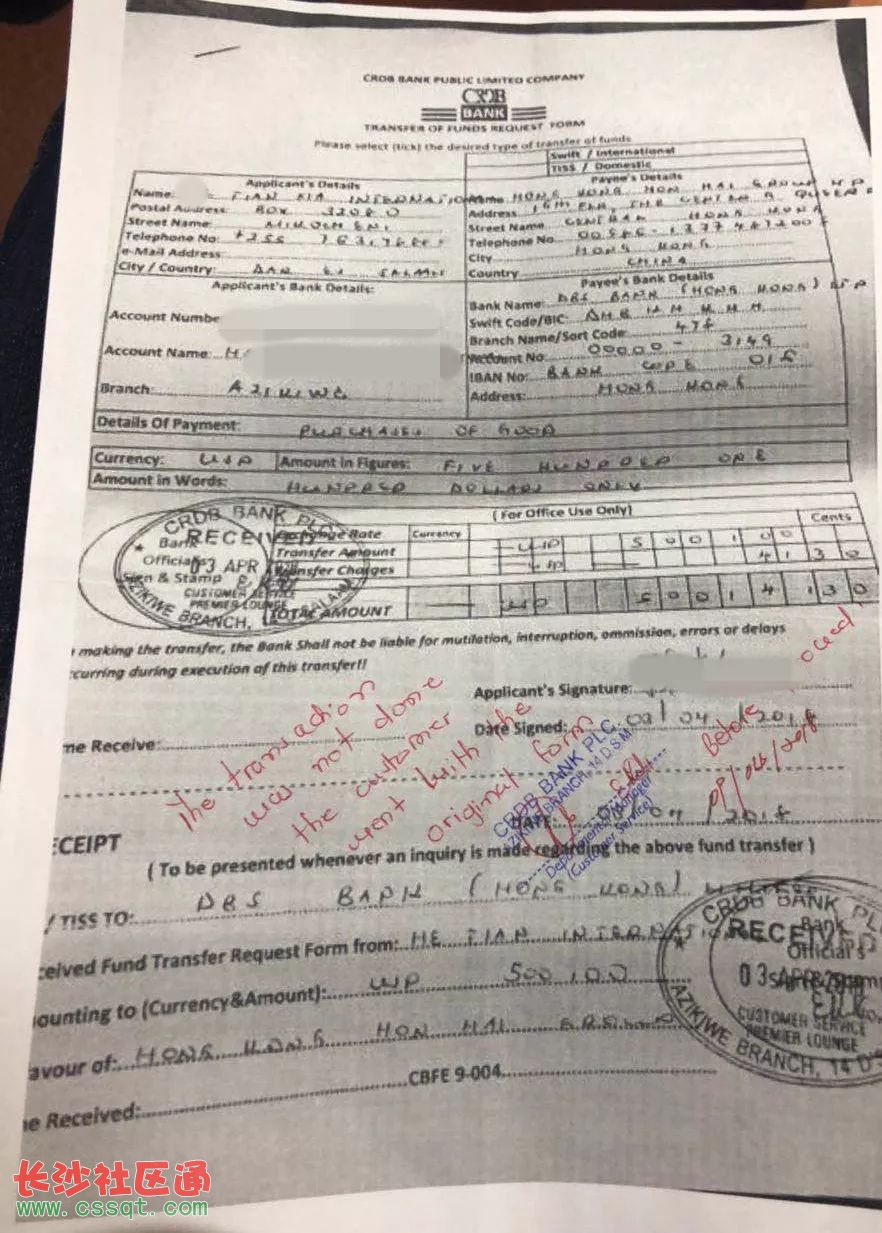 CRDB BANK PUBLIC LIMITED COMPANY
CRDB
BANK
TRANSFER OF FUNDS REQUEST FORM
Please select (tick) the desired type of transfer of funds
Swift / International
TISS / Domestic
Applicant's Details
Payee's Details
Name: TIAN XIA INTERNATION
Name HONG KONG HON HAI GROUP
Postal Address: BOX 32080
Address
Street Name:
Street Name CENTRAL HONG KONG
Telephone No: +255
Telephone No.
e-Mail Address:
City HONG KONG
City / Country: DAR ES SALAAM
Country CHINA
Applicant's Bank Details:
Payee's Bank Details
Bank Name: DBS BANK (HONG KONG)
Account Numbe
Swift Code/BIC:
Branch Name/Sort Code: 478
Account Name: H
Account No 00000 - 3149
IBAN No: BANK CODE 016
Branch: AZIKIWE
Address: HONG KONG
Details Of Payment: PURCHASES OF GOOD
Currency: USD Amount in Figures: FIVE HUNDRED ONE
Amount in Words: HUNDRED DOLLARS ONLY
(For Office Use Only)
CRDB BANK PLC
RECEIVED
03 APR
CUSTOMER SERVICE
PREMIER LOUNGE
AZIKIWE BRANCH,
Bank
Official's
Sign & Stamp
Exchange Rate Currency Cents
Transfer Amount USD 500100
Transfer Charges 41 30
TOTAL AMOUNT 500141 30
making the transfer, the Bank Shall not be liable for mutilation, interruption, ommission, errors or delays
ccurring during execution of this transfer!!
Applicant's Signature:
me Receive:
Date Signed: 03/04/2018
The transaction
was not done
the customer
went with the
original form
Before
CRDB BANK PLC.
AZIKIWE BRANCH, 14 D.S.M
Departmental Manager
(Customer Service)
ECEIPT
DATE:
(To be presented whenever an inquiry is made regarding the above fund transfer)
/ TISS TO: DBS BANK (HONG KONG)
ceived Fund Transfer Request Form from: HE TIAN INTERNATION
ounting to (Currency&Amount): USD 500 100
avour of: HONG KONG HON HAI GROUP
CRDB BANK PLC
RECEIVED
Bank
Official's
03 APR
CUSTOMER SERVICE
PREMIER LOUNGE
AZIKIWE BRANCH, 14 D
ne Received: CBFE 9-004
长沙社区通
www.cssqt.com